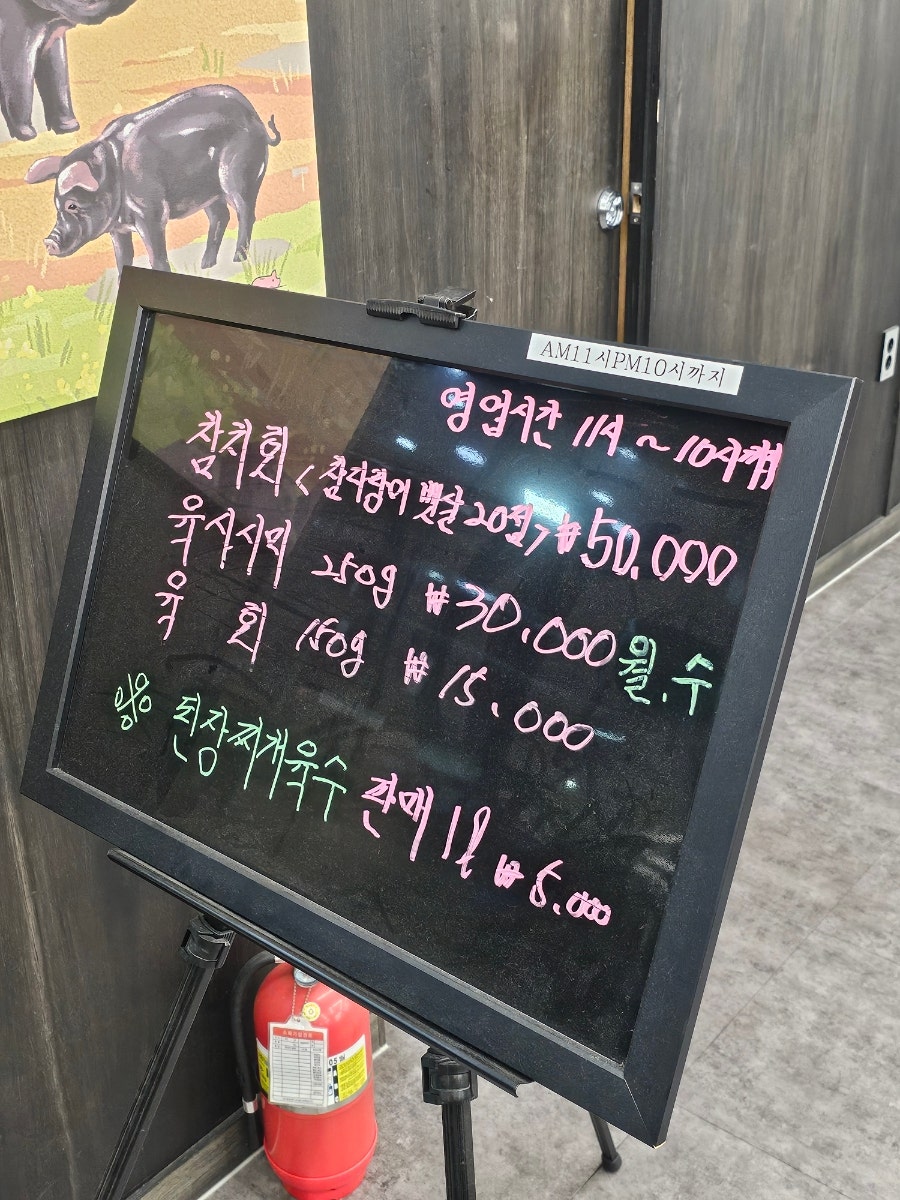 AM11시PM10시까지
영업시간 11시 ~ 10시까지
참치회 <참다랑어 뱃살 20점> ₩50,000
육사시미 250g ₩30,000 월.수
육 회 150g ₩15,000
※ 된장찌개육수 판매 1ℓ ₩5,000